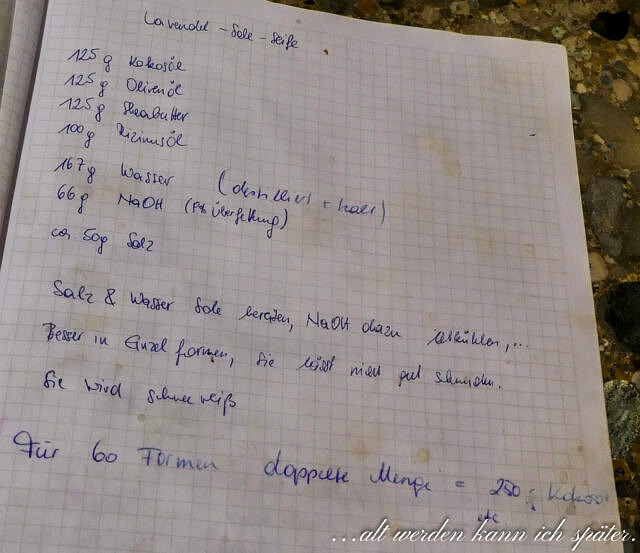 Lavendel-Sole-Seife
125g Kokosöl
125g Olivenöl
125g Sheabutter
100g Rizinusöl
167g Wasser (destilliert + kalt)
66g NaOH (9% Überfettung)
ca. 50g Salz
Salz & Wasser Sole bereiten, NaOH dazu abkühlen,...
Besser in Einzelformen, sie lässt nicht gut schneiden.
Sie wird schneeweiß
Für 60 Formen doppelte Menge = 250 g Kokosöl
etc
...alt werden kann ich später.